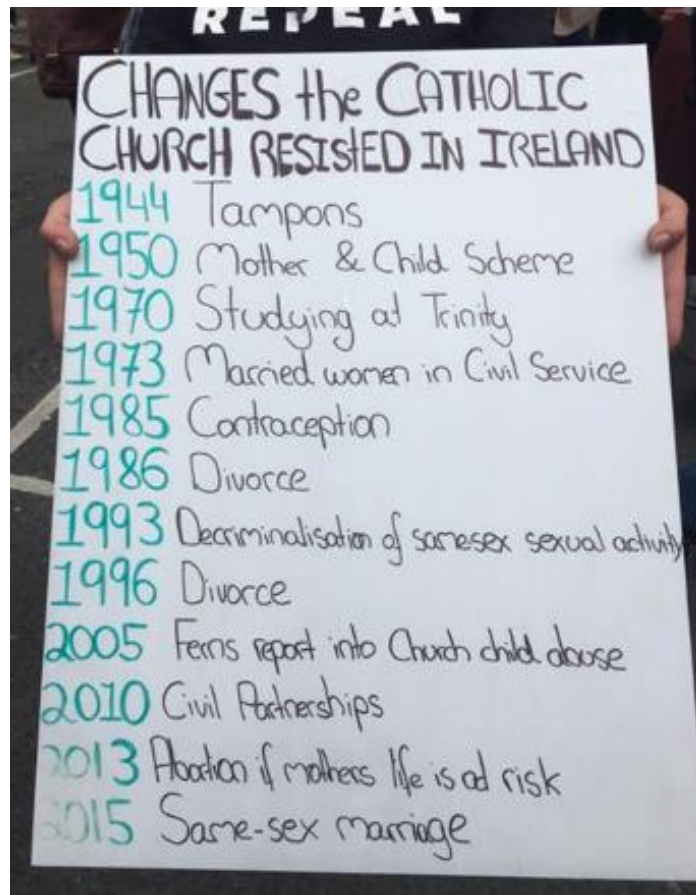 REPEAL
CHANGES the CATHOLIC
CHURCH RESISTED IN IRELAND
1944 Tampons
1950 Mother & Child Scheme
1970 Studying at Trinity
1973 Married women in Civil Service
1985 Contraception
1986 Divorce
1993 Decriminalisation of samesex sexual activity
1996 Divorce
2005 Ferns report into Church child abuse
2010 Civil Partnerships
2013 Abortion if mothers life is at risk
2015 Same-sex marriage